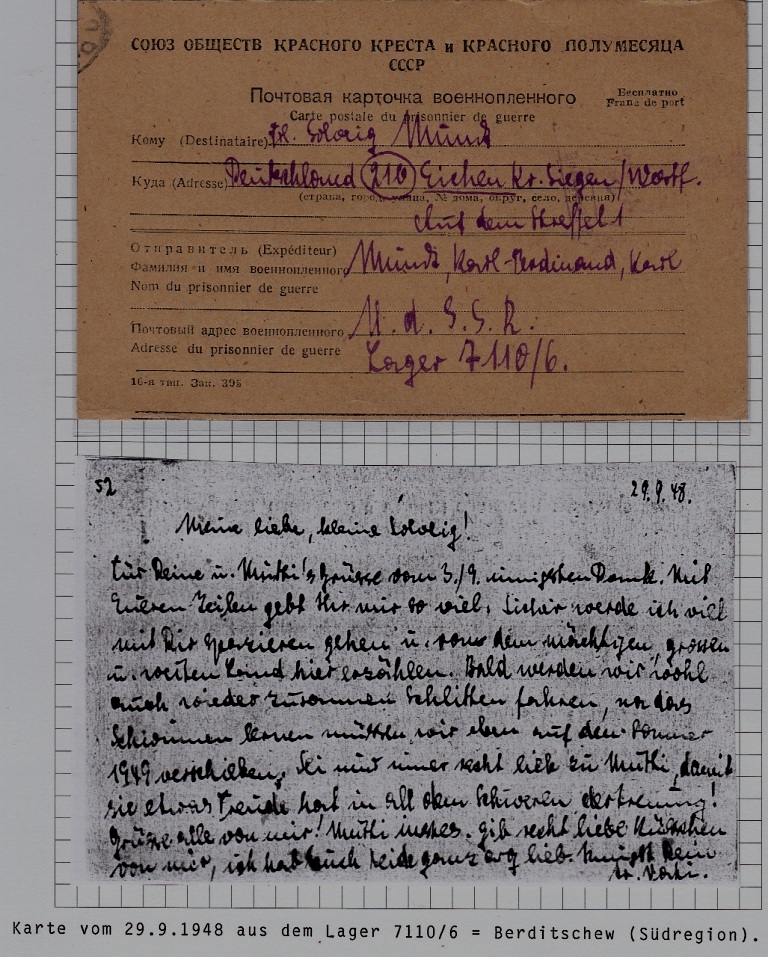 СОЮЗ ОБЩЕСТВ КРАСНОГО КРЕСТА и КРАСНОГО ПОЛУМЕСЯЦА
СССР
Почтовая карточка военнопленного
Бесплатно
Franc de port
Carte postale du prisonnier de guerre
Кому (Destinataire) Frl. Solveig Mundt
Куда (Adresse) Deutschland (21b) Eichen Kr. Siegen/Westf.
(страна, город, улица, № дома, округ, село, деревня)
Auf dem Streffel 1
Отправитель (Expéditeur)
Фамилия и имя военнопленного Mundt, Karl-Ferdinand, Karl
Nom du prisonnier de guerre
Почтовый адрес военнопленного U.d.S.S.R.
Adresse du prisonnier de guerre Lager 7110/6.
16-я тип. Зак. 395
52 29.9.48.
Meine liebe, kleine Solveig!
Für Deine u. Mutti's Grüsse vom 3./9. innigsten Dank. Mit
Eueren Zeilen gebt Ihr mir so viel. Sicher werde ich viel
mit Dir spazieren gehen u. von dem mächtigen, grossen
u. weiten Land hier erzählen. Bald werden wir wohl
auch wieder zusammen Schlitten fahren, nur das
Schwimmen lernen müssen wir eben auf den Sommer
1949 verschieben. Sei nur immer recht lieb zu Mutti, damit
sie etwas Freude hat in all dem Schweren der Trennung!
Grüsse alle von mir! Mutti gib recht liebe Küsschen
von mir, ich hab Euch beide ganz arg lieb. Innigst Dein
Vati.
Karte vom 29.9.1948 aus dem Lager 7110/6 = Berditschew (Südregion).